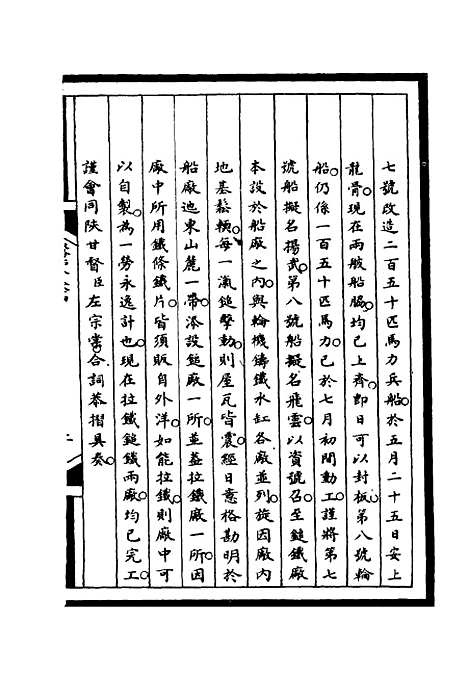 七號改造二百五十匹馬力兵船於五月二十五日安上
龍骨現在兩舷船脇均已上齊即日可以封板第八號輪
船仍係一百五十匹馬力已於七月初間動工謹將第七
號船擬名揚武第八號船擬名飛雲以資號召至鎚鐵廠
本設於船廠之內與輪機鑄鐵水缸各廠並列旋因廠內
地基鬆輭每一汽鎚擊動則屋瓦皆震經日意格勘明於
船廠迤東山麓一帶添設鎚廠一所並蓋拉鐵廠一所因
廠中所用鐵條鐵片皆須販自外洋如能拉鐵則廠中可
以自製為一勞永逸計也現在拉鐵鎚鐵兩廠均已完工
謹會同陝甘督臣左宗棠合詞恭摺具奏